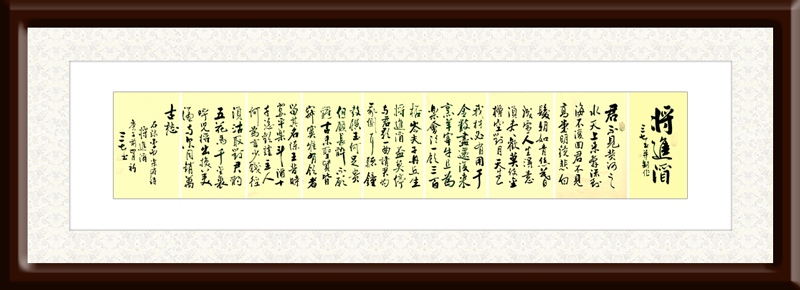 將進酒
君不見黃河之
水天上來奔流到
海不復回君不見
高堂明鏡悲白
髮朝如青絲暮
成雪人生得意
須盡歡莫使金
樽空對月天生
我材必有用千
金散盡還復來
烹羊宰牛且為
樂會須一飲三百
杯岑夫子丹丘生
將進酒杯莫停
與君歌一曲請君為
我傾耳聽鐘
鼓饌玉何足貴
但願長醉不願
醒古來聖賢皆
寂寞惟有飲者
留其名陳王昔時
宴平樂斗酒十
千恣歡謔主人
何為言少錢徑
須沽取對君酌
五花馬千金裘
呼兒將出換美
酒與爾同銷萬
古愁
將進酒
三七書